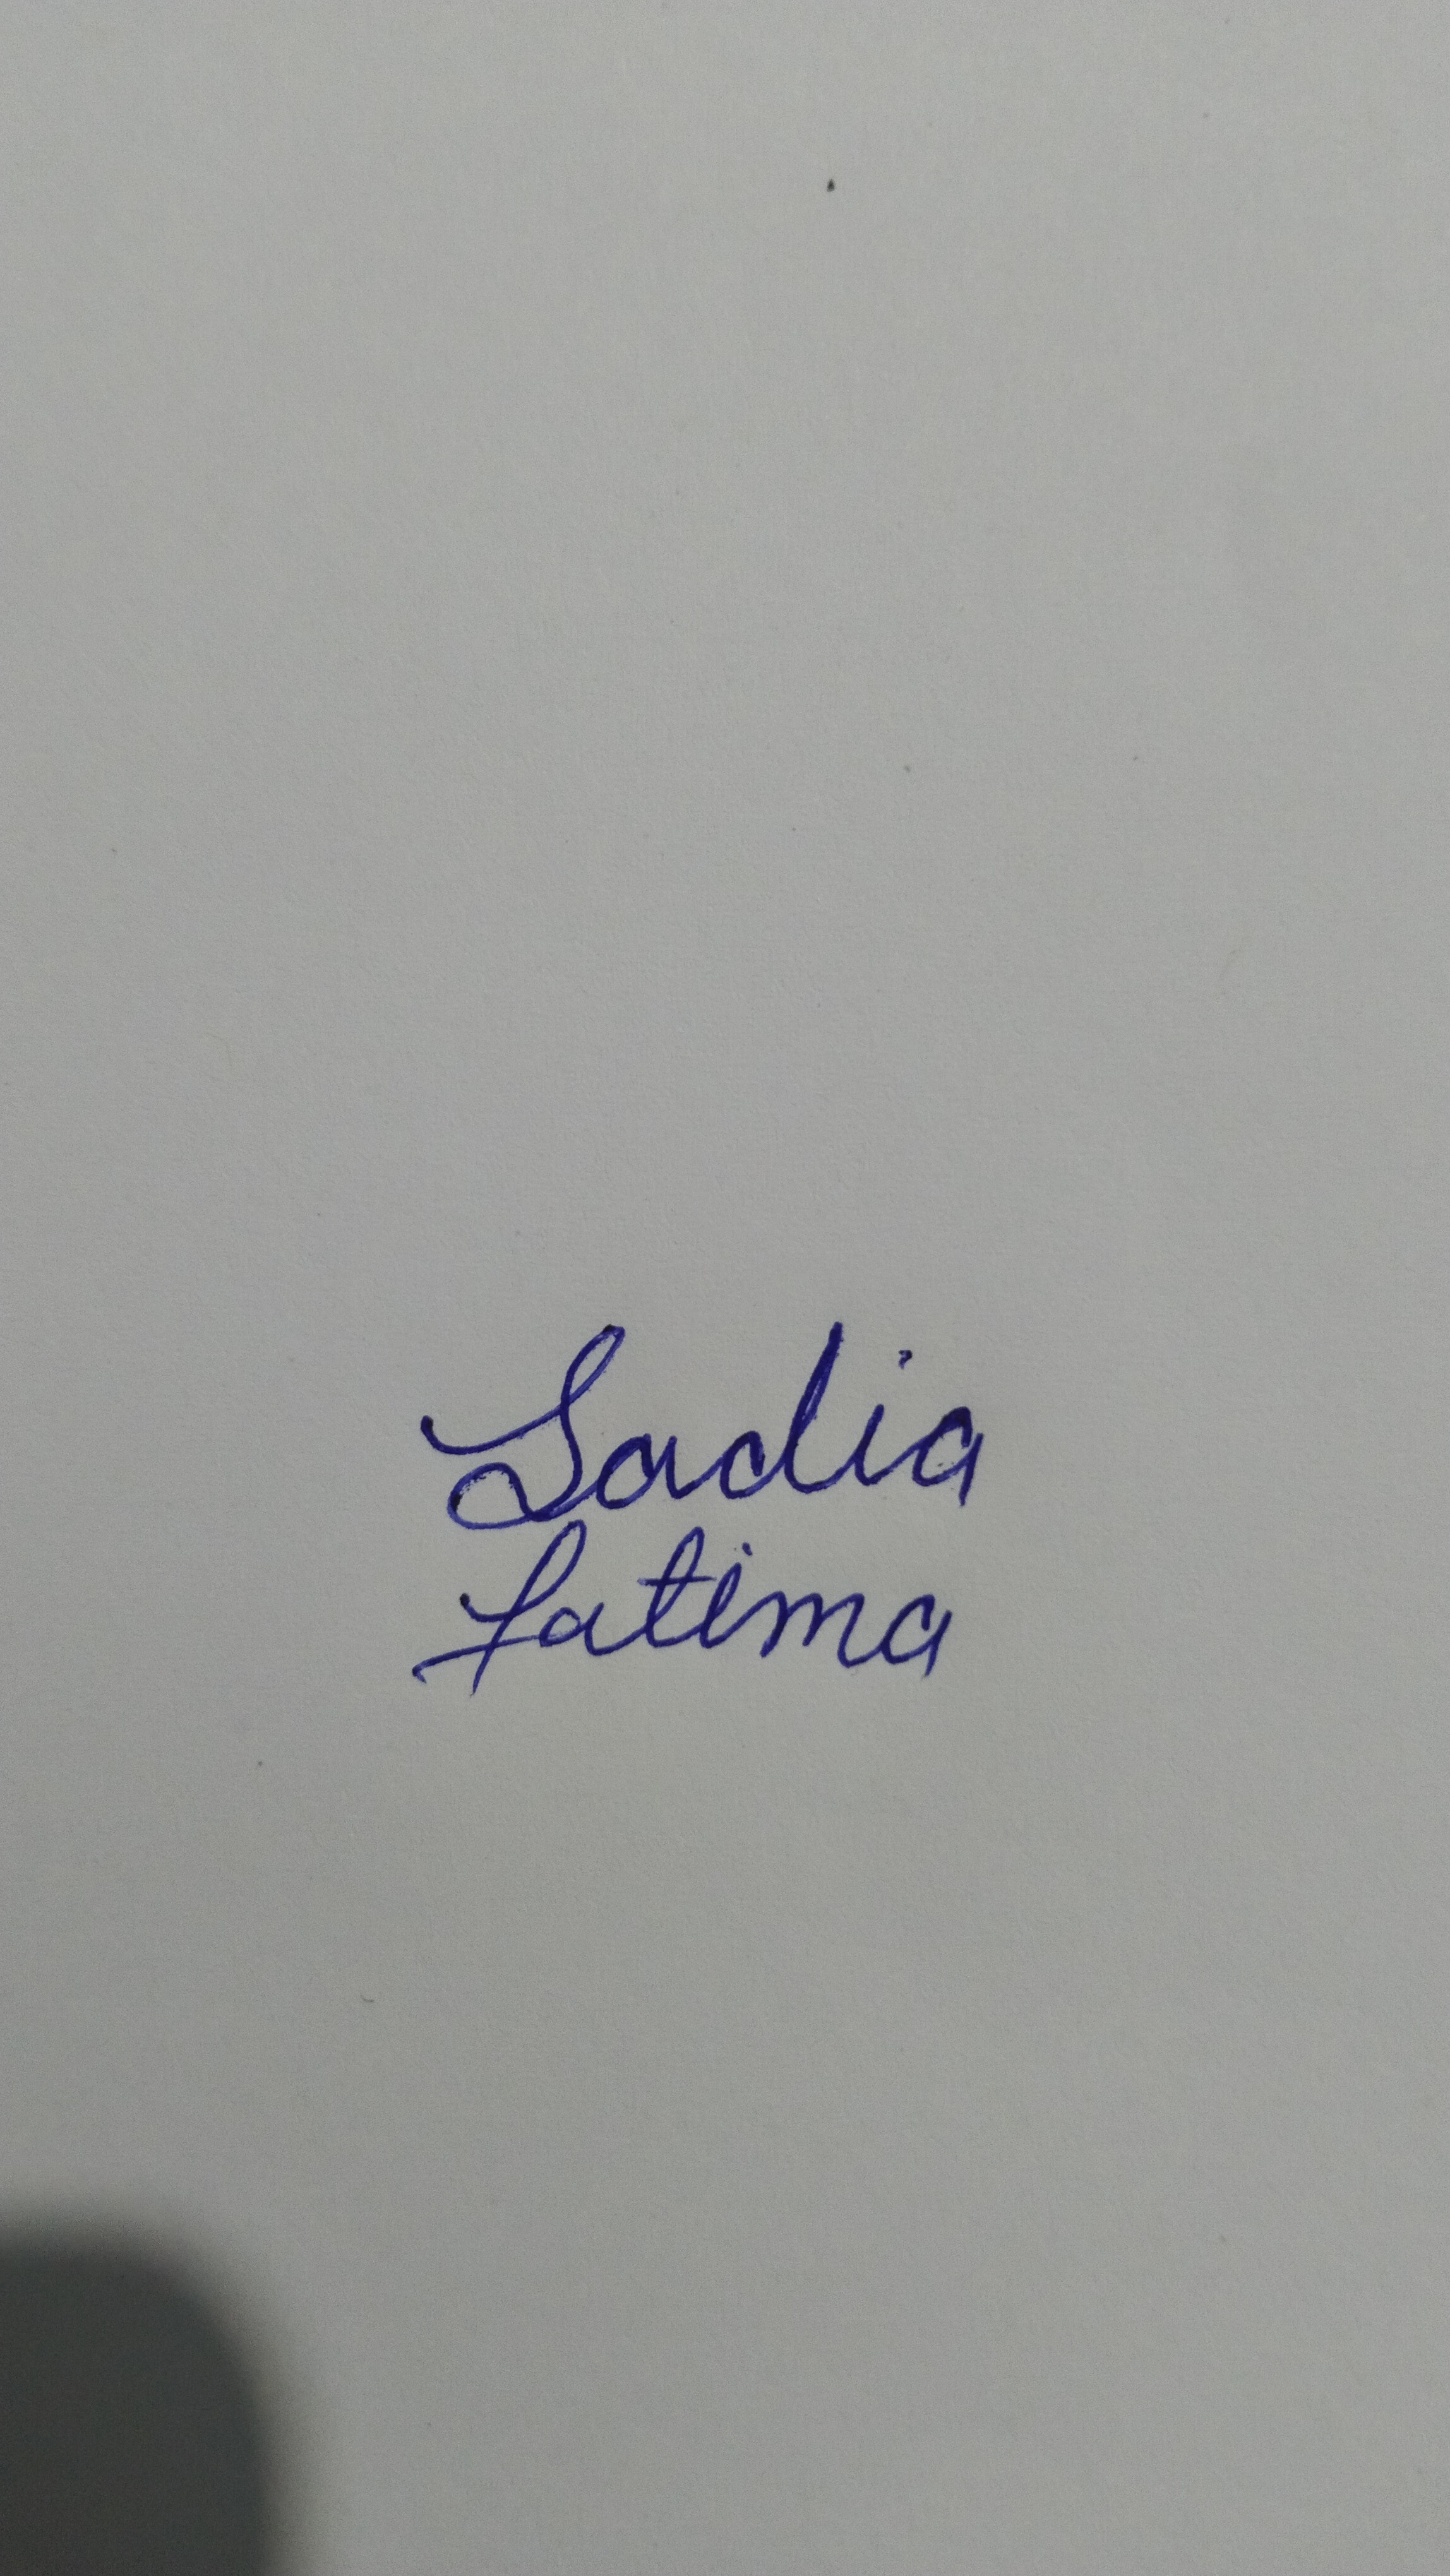 Sadia
fatima